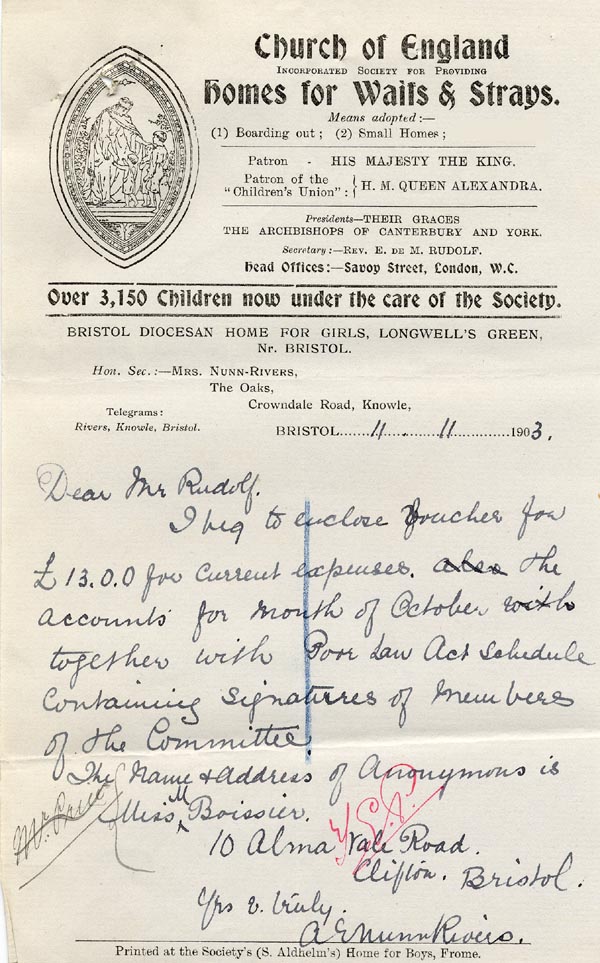 Church of England
Incorporated Society for Providing
Homes for Waifs & Strays.
Means adopted:—
(1) Boarding out; (2) Small Homes;
Patron - HIS MAJESTY THE KING.
Patron of the "Children's Union": } H. M. QUEEN ALEXANDRA.
Presidents—THEIR GRACES
THE ARCHBISHOPS OF CANTERBURY AND YORK.
Secretary:—Rev. E. de M. RUDOLF.
Head Offices:—Savoy Street, London, W.C.
Over 3,150 Children now under the care of the Society.
BRISTOL DIOCESAN HOME FOR GIRLS, LONGWELL'S GREEN,
Nr. BRISTOL.
Hon. Sec.:—Mrs. Nunn-Rivers,
The Oaks,
Crowndale Road, Knowle,
Telegrams:
Rivers, Knowle, Bristol.
BRISTOL......11............11............1903.
Dear Mr Rudolf.
I beg to enclose Voucher for
£13.0.0 for current expenses. also the
accounts for month of October with
together with Poor Law Act Schedule
containing signatures of Members
of the Committee.
The Name & address of Anonymous is
Miss M Boissier.
10 Alma Vale Road.
Clifton. Bristol.
Yrs v. truly.
A E Nunn Rivers.
Printed at the Society's (S. Aldhelm's) Home for Boys, Frome.